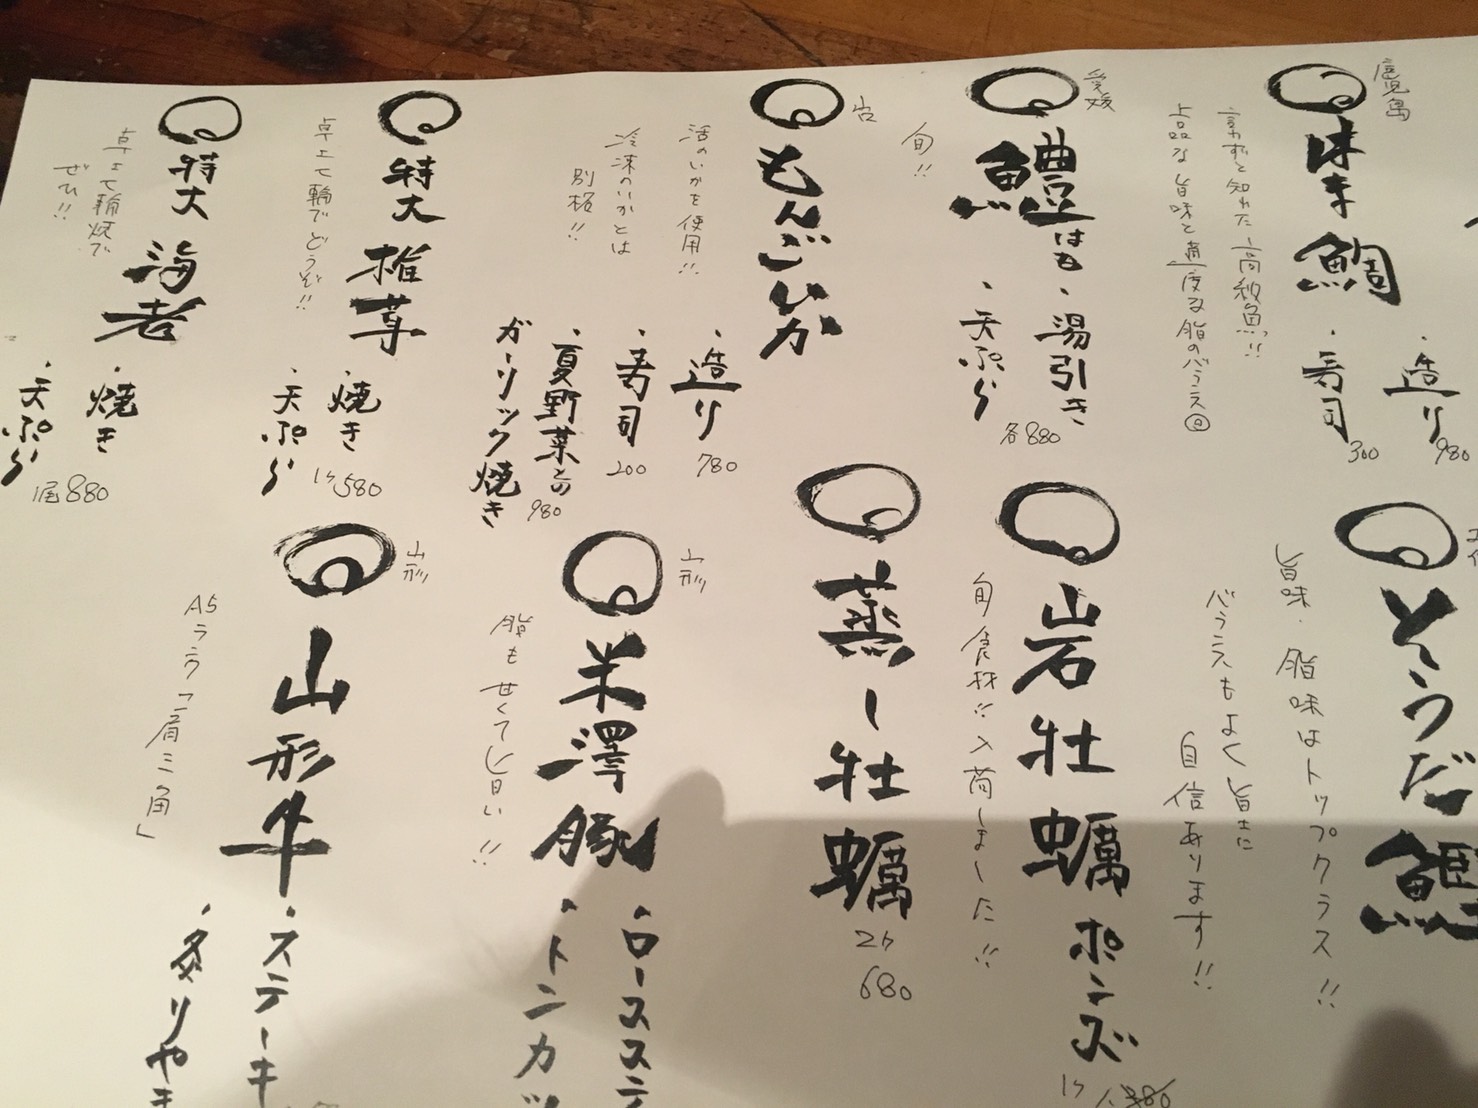 鹿児島
味ま鯛
高級魚!!
上品な旨味と適度な脂のバランス◎
・造り
980
・寿司
300
愛媛
鱧はも
旬!!
・湯引き
・天ぷら
各880
もんごいか
活のいかを使用!!
冷凍のいかとは
別格!!
・造り
780
・寿司
200
・夏野菜との
ガーリック焼き
980
特大 椎茸
卓上で輪でどうぞ!!
・焼き
・天ぷら
1ケ580
特大 海老
卓上で輪焼で
ぜひ!!
・焼き
・天ぷら
1尾880
そうだ鰹
旨味・脂味はトップクラス!!
バランスもよく旨さに
自信あります!!
岩牡蠣 ポンズ
旬食材!!入荷しました!!
1ケ
蒸し牡蠣
2ケ
680
山形
米澤豚
脂も甘くて旨い!!
・ロースステ
・トンカツ
山形
山形牛
A5ランク「肩三角」
・ステーキ
・炙りやき